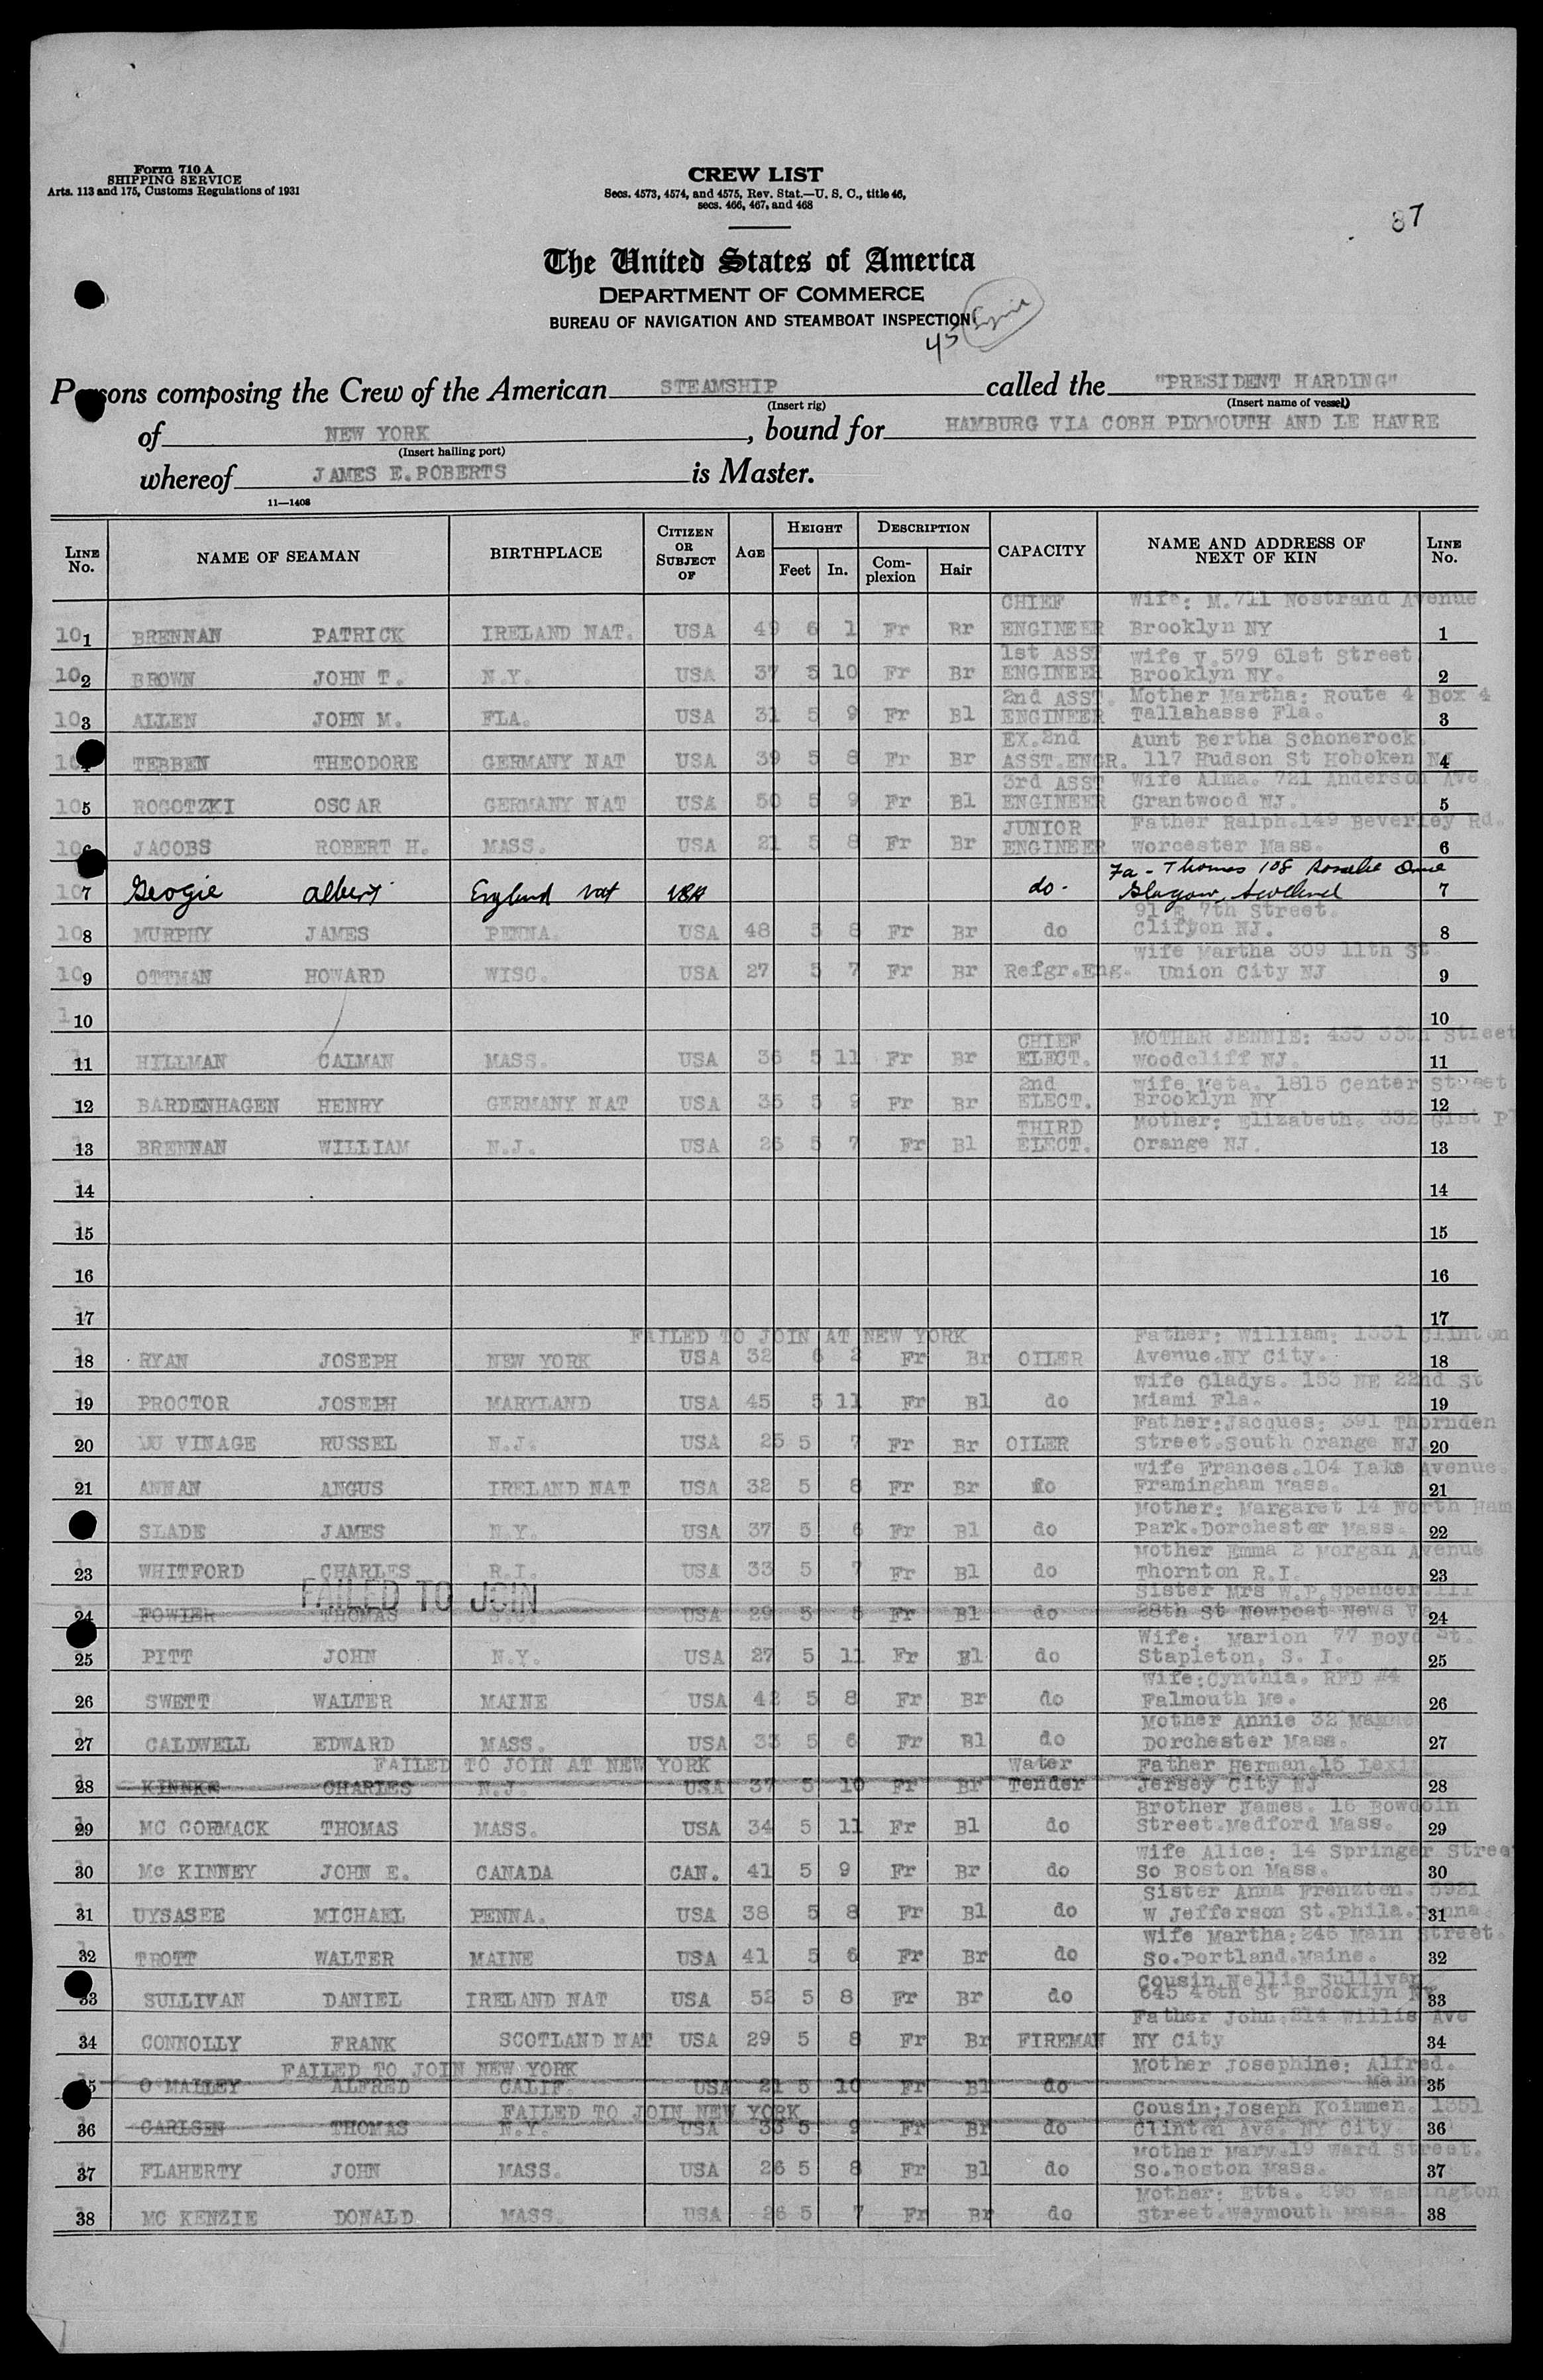 Form 710 A
SHIPPING SERVICE
Arts. 113 and 175, Customs Regulations of 1931
CREW LIST
Secs. 4573, 4574, and 4575, Rev. Stat.—U. S. C., title 46,
secs. 466, 467, and 468
87
The United States of America
DEPARTMENT OF COMMERCE
BUREAU OF NAVIGATION AND STEAMBOAT INSPECTION
45
Persons composing the Crew of the American STEAMSHIP called the "PRESIDENT HARDING"
(Insert rig) (Insert name of vessel)
of NEW YORK, bound for HAMBURG VIA COBH PLYMOUTH AND LE HAVRE
(Insert hailing port)
whereof JAMES E. ROBERTS is Master.
11—1408
LINE No. NAME OF SEAMAN BIRTHPLACE CITIZEN OR SUBJECT OF AGE HEIGHT DESCRIPTION CAPACITY NAME AND ADDRESS OF NEXT OF KIN LINE No.
Feet In. Complexion Hair
CHIEF Wife: M. 711 Nostrand Avenue
10 1 BRENNAN PATRICK IRELAND NAT. USA 49 6 1 Fr Br ENGINEER Brooklyn NY 1
1st ASST Wife V. 579 61st Street
10 2 BROWN JOHN T. N.Y. USA 37 5 10 Fr Br ENGINEER Brooklyn NY. 2
2nd ASST. Mother Martha: Route 4 Box 4
10 3 ALLEN JOHN M. FLA. USA 31 5 9 Fr Bl ENGINEER Tallahasse Fla. 3
EX.2nd Aunt Bertha Schonerock.
10 4 TEBBEN THEODORE GERMANY NAT USA 39 5 8 Fr Br ASST.ENGR. 117 Hudson St Hoboken NJ 4
3rd ASST Wife Alma. 721 Anderson Ave.
10 5 ROGOTZKI OSCAR GERMANY NAT USA 50 5 9 Fr Bl ENGINEER Grantwood NJ. 5
JUNIOR Father Ralph.149 Beverley Rd.
10 6 JACOBS ROBERT H. MASS. USA 21 5 8 Fr Br ENGINEER Worcester Mass. 6
Fa - Thomas 108
10 7 Geogie Albert England Nat USA do. Glasgow, Scotland 7
91 E 7th Street.
10 8 MURPHY JAMES PENNA. USA 48 5 8 Fr Br do Clifton NJ. 8
Wife Martha 309 11th St
10 9 OTTMAN HOWARD WISC. USA 27 5 7 Fr Br Refgr.Eng. Union City NJ 9
1 10 10
CHIEF MOTHER JENNIE: 435 35th Street
11 HILLMAN CALMAN MASS. USA 36 5 11 Fr Br ELECT. Woodcliff NJ. 11
2nd Wife Meta. 1815 Center Street
12 BARDENHAGEN HENRY GERMANY NAT USA 35 5 9 Fr Br ELECT. Brooklyn NY 12
THIRD Mother: Elizabeth. 332 Gist Pl
13 BRENNAN WILLIAM N.J. USA 26 5 7 Fr Bl ELECT. Orange NJ. 13
14 14
15 15
16 16
17 17
FAILED TO JOIN AT NEW YORK Father: William: 1331 Clinton
18 RYAN JOSEPH NEW YORK USA 32 6 2 Fr Br OILER Avenue.NY City. 18
Wife Gladys. 153 NE 22nd St
19 PROCTOR JOSEPH MARYLAND USA 45 5 11 Fr Bl do Miami Fla. 19
Father:Jacques: 391 Thornden
20 DU VINAGE RUSSEL N.J. USA 25 5 7 Fr Br OILER Street.South Orange NJ 20
Wife Frances.104 Lake Avenue.
21 ANNAN ANGUS IRELAND NAT USA 32 5 8 Fr Br do Framingham Mass. 21
Mother: Margaret 14 North Ham
SLADE JAMES N.Y. USA 37 5 6 Fr Bl do Park.Dorchester Mass. 22
Mother Emma 2 Morgan Avenue
23 WHITFORD CHARLES R.I. USA 33 5 7 Fr Bl do Thornton R.I. 23
FAILED TO JOIN Sister Mrs W.P.Spencer.111
24 FOWLER THOMAS USA 29 5 5 Fr Bl do 28th St Newpost News Va 24
Wife: Marion 77 Boyd St.
25 PITT JOHN N.Y. USA 27 5 11 Fr Bl do Stapleton, S. I. 25
Wife:Cynthia. RFD #4
26 SWETT WALTER MAINE USA 42 5 8 Fr Br do Falmouth Me. 26
Mother Annie 32
27 CALDWELL EDWARD MASS. USA 33 5 6 Fr Bl do Dorchester Mass. 27
FAILED TO JOIN AT NEW YORK Water Father Herman.15
28 KINNKE CHARLES N.J. USA 37 5 10 Fr Br Tender Jersey City NJ 28
Brother James. 16 Bowdoin
29 MC CORMACK THOMAS MASS. USA 34 5 11 Fr Bl do Street.Medford Mass. 29
Wife Alice: 14 Springer Street
30 Mc KINNEY JOHN E. CANADA CAN. 41 5 9 Fr Br do So Boston Mass. 30
Sister Anna Frenzten. 5921
31 UYSASEE MICHAEL PENNA. USA 38 5 8 Fr Bl do W Jefferson St.Phila.Penna. 31
Wife Martha:246 Main Street.
32 TROTT WALTER MAINE USA 41 5 6 Fr Br do So.Portland.Maine. 32
Cousin Nellie Sullivan
33 SULLIVAN DANIEL IRELAND NAT USA 52 5 8 Fr Br do 645 46th St Brooklyn NY 33
Father John.214 Willis Ave
34 CONNOLLY FRANK SCOTLAND NAT USA 29 5 8 Fr Br FIREMAN NY City 34
FAILED TO JOIN NEW YORK Mother Josephine: Alfred.
35 O'MALLEY ALFRED CALIF. USA 21 5 10 Fr Bl do Maine 35
FAILED TO JOIN NEW YORK Cousin:Joseph Koimmen. 1351
36 CARLSEN THOMAS N.Y. USA 35 5 9 Fr Br do Clinton Ave. NY City. 36
Mother Mary.19 Ward Street.
37 FLAHERTY JOHN MASS. USA 26 5 8 Fr Bl do So.Boston Mass. 37
Mother: Etta. 295 Washington
38 MC KENZIE DONALD MASS. USA 26 5 7 Fr Br do Street.Weymouth Mass. 38